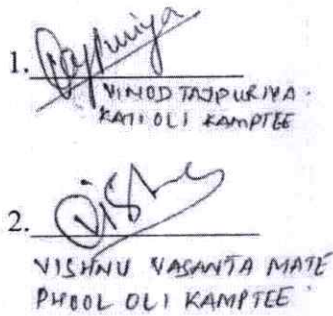 1. Tajpuriya
VINOD TAJPURIYA.
KATI OLI KAMPTEE
2. Vishnu
VISHNU VASANTA MATE
PHOOL OLI KAMPTEE